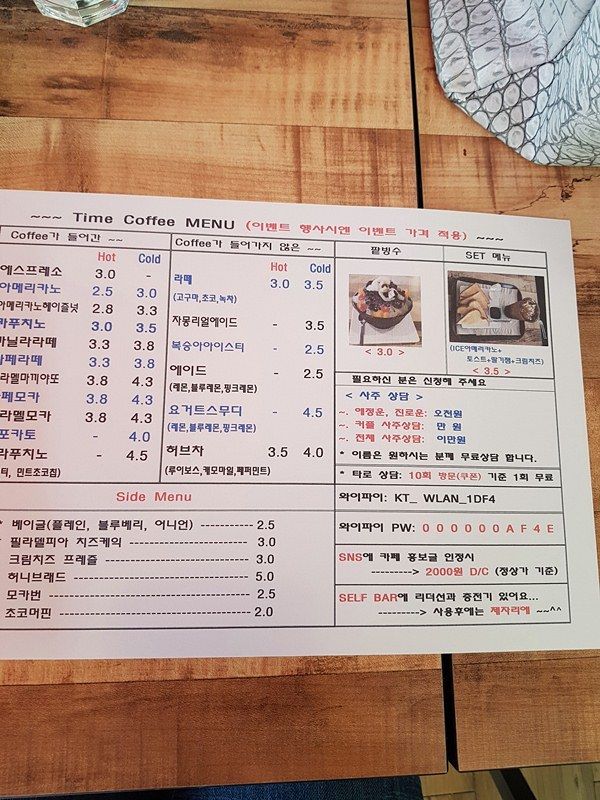 ~~~ Time Coffee MENU (이벤트 행사시엔 이벤트 가격 적용) ~~~
Coffee가 들어간 ~~
Hot Cold
에스프레소 3.0 -
아메리카노 2.5 3.0
아메리카노헤이즐넛 2.8 3.3
카푸치노 3.0 3.5
바닐라라떼 3.3 3.8
카페라떼 3.3 3.8
라멜마끼아또 3.8 4.3
페모카 3.8 4.3
라멜모카 3.8 4.3
포카토 - 4.0
라푸치노 - 4.5
티, 민트초코칩)
Coffee가 들어가지 않은 ~~
Hot Cold
라떼 3.0 3.5
(고구마,초코,녹차)
자몽리얼에이드 - 3.5
복숭아아이스티 - 2.5
에이드 - 2.5
(레몬,블루레몬,핑크레몬)
요거트스무디 - 4.5
(레몬,블루레몬,핑크레몬)
허브차 3.5 4.0
(루이보스,캐모마일,페퍼민트)
팥빙수
< 3.0 >
SET 메뉴
(ICE아메리카노+
토스트+딸기쨈+크림치즈)
< 3.5 >
필요하신 분은 신청해 주세요
< 사주 상담 >
~. 애정운, 진로운: 오천원
~. 커플 사주상담: 만 원
~. 전체 사주상담: 이만원
* 이름은 원하시는 분께 무료상담 합니다.
* 타로 상담: 10회 방문(쿠폰) 기준 1회 무료
와이파이: KT_ WLAN_1DF4
와이파이 PW: 000000AF4E
SNS에 카페 홍보글 인정시
---------> 2000원 D/C (정상가 기준)
SELF BAR에 리더선과 충전기 있어요...
---------> 사용후에는 제자리에 ~~^^
Side Menu
* 베이글(플레인, 블루베리, 어니언) ----------- 2.5
* 필라델피아 치즈케익 ----------------- 3.0
크림치즈 프레즐 --------------------- 3.0
허니브래드 -------------------------- 5.0
모카번 ------------------------------ 2.5
초코머핀 ---------------------------- 2.0